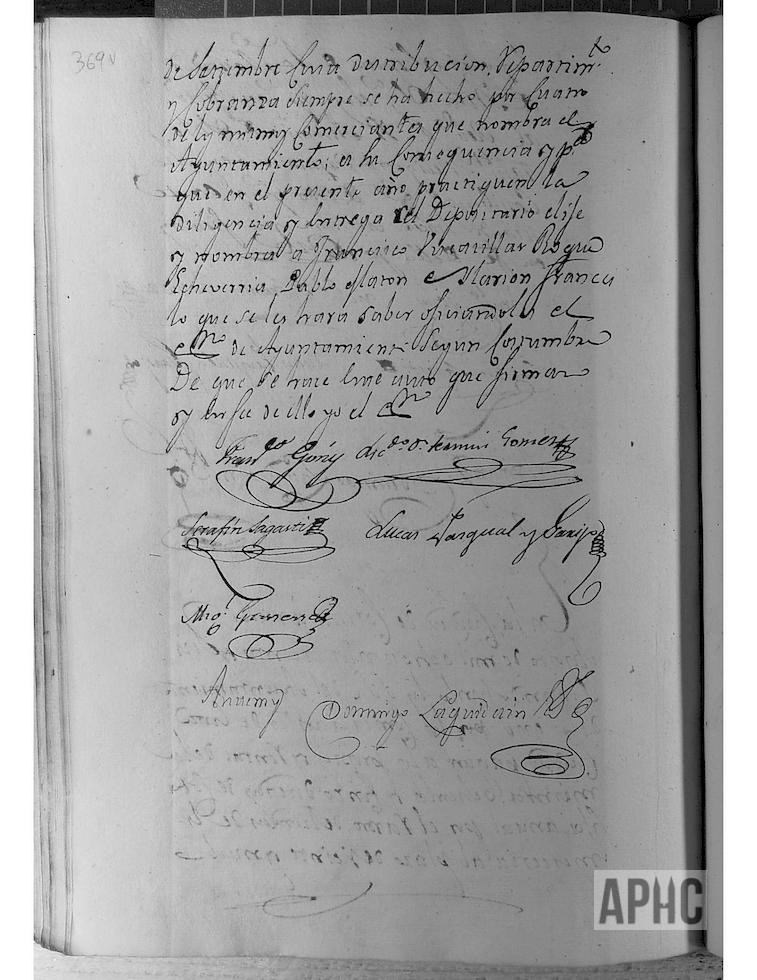 369v
de Setiembre Cuia distribucion, Repartim.to
y Cobranza siempre se ha hecho por Cuatro
de los mismos Comerciantes que nombra el
Ayuntamiento; en su Consequencia y p.a
que en el presente año practiquen la
diligencia y entrega al Depositario elije
y nombra a Francisco Roque
Echeverria Pablo Maton e Ylarion Frances
lo que se les hara saber oficiandolos el
Ss.no de Ayuntamiento Segun Costumbre
De que se hace este auto que firman
y en fee de ello yo el Ss.no
Fran.co Goñy Lic.do D.n Fermin Gomez
Serafin Sagasti
Lucas Pasqual y
Mig.l Gimenez
Antemy
Domingo Laquidain
APHC